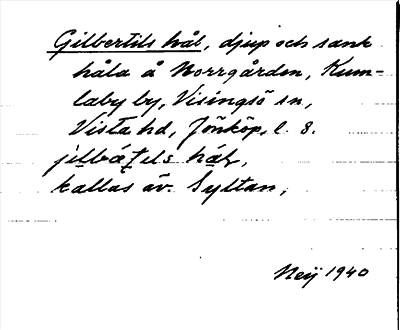 Gilbertils hål, djup och sank
håla å Norrgården, Kum-
laby by, Visingsö sn,
Vista hd, Jönköp. l. 8.
jilbátels hál,
kallas äv. Syltan,
Neij 1940